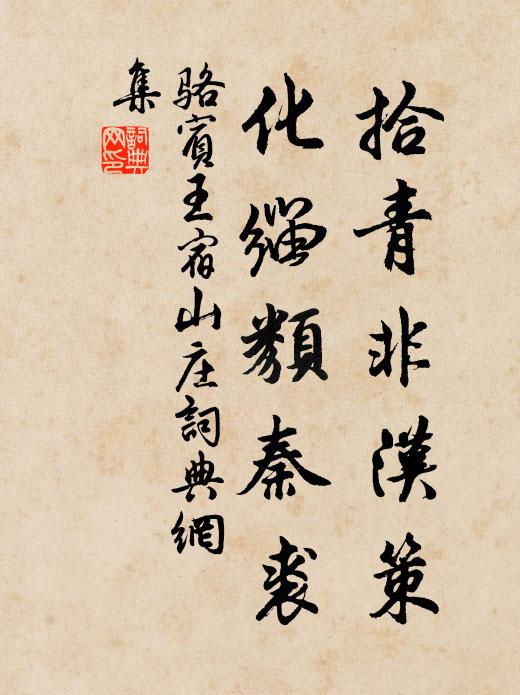 拾青非漢策
化緇類秦裘
駱賓王宿山庄詞典網
集
詞典
網印